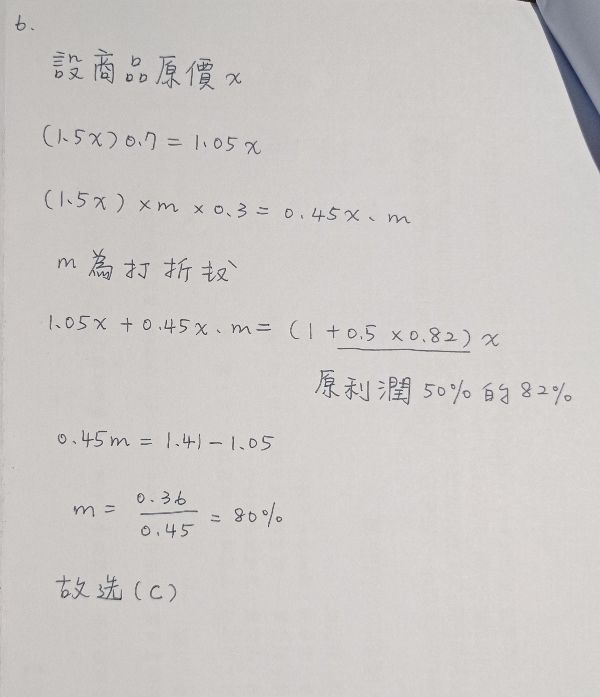 6.
設商品原價 x
(1.5x)0.7 = 1.05x
(1.5x) × m × 0.3 = 0.45x、m
m 為打折扣
1.05x + 0.45x、m = (1 + 0.5 × 0.82) x
原利潤 50% 的 82%
0.45m = 1.41 - 1.05
m = 0.36 / 0.45 = 80%
故选 (C)